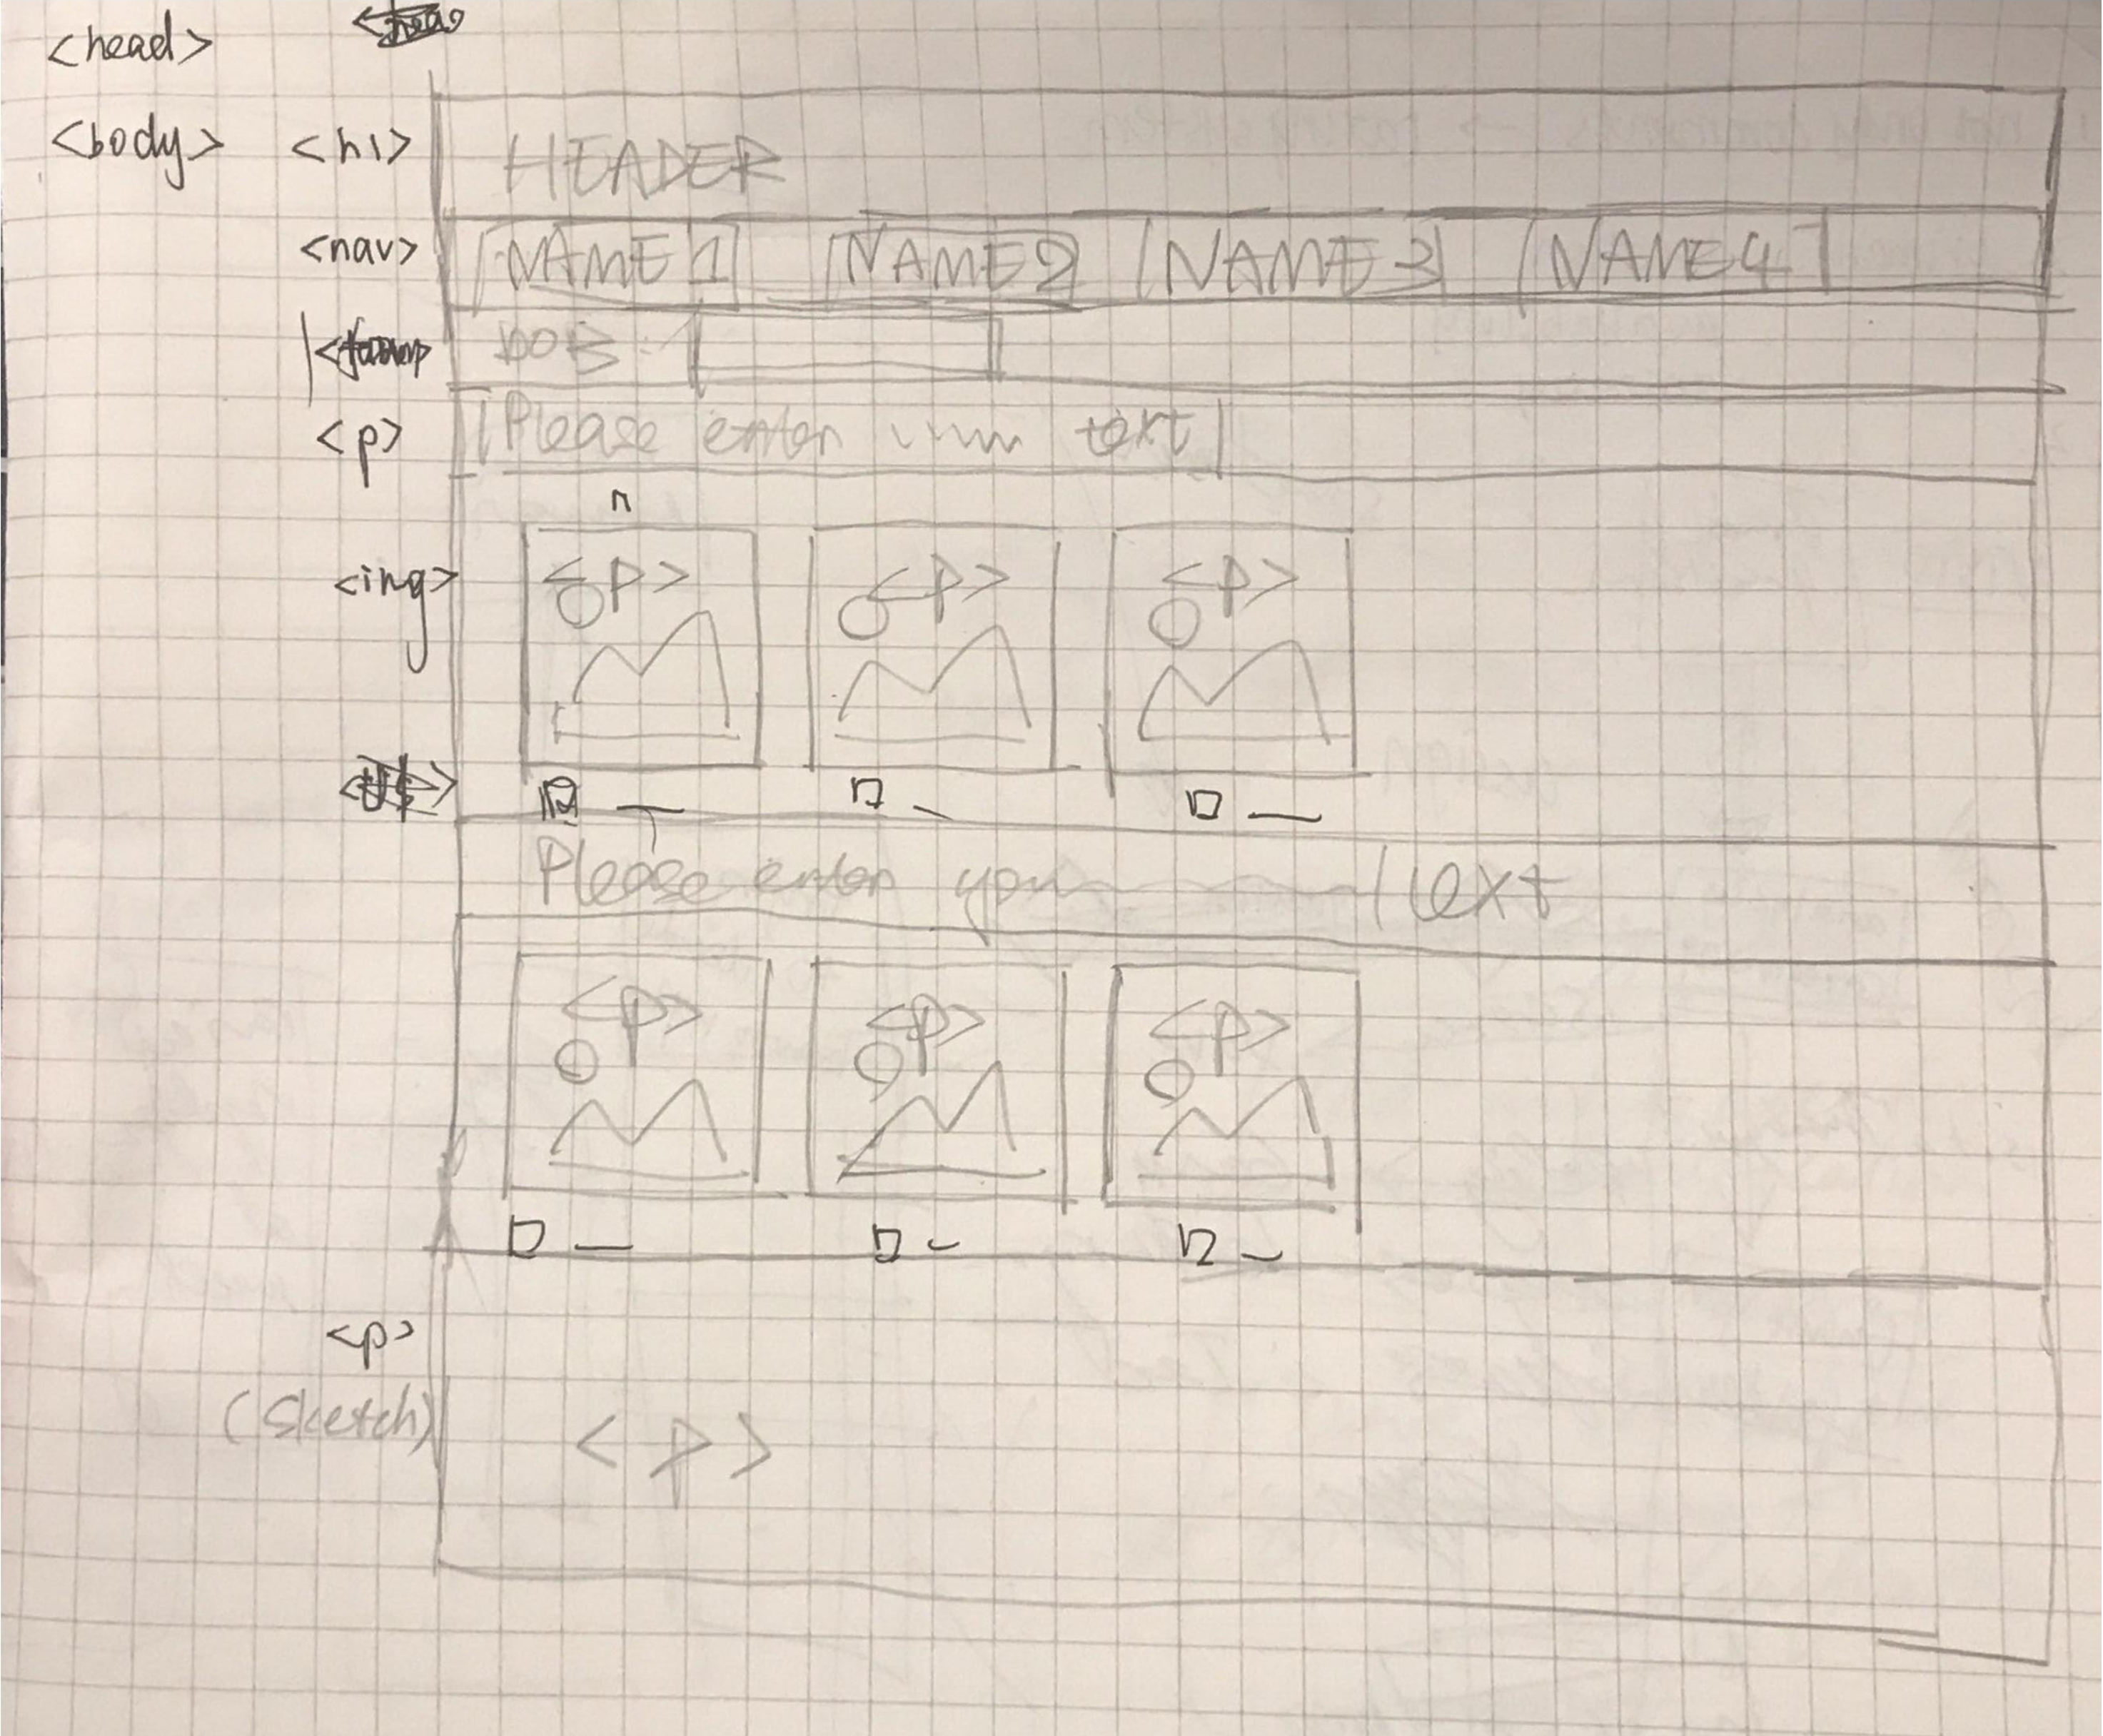 <head>
<body> <h1> HEADER
<nav> NAME1 NAME2 NAME3 NAME4
DOB:
<p> Please enter text
<ing> <p> <p> <p>
Please enter your text
<p> <p> <p>
<p>
(Sketch) <p>